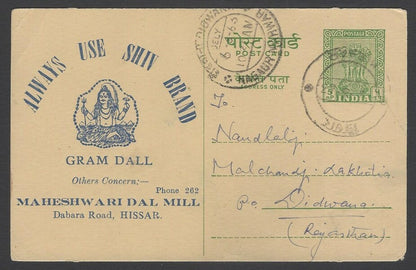 ALWAYS USE SHIV BRAND
GRAM DALL
Others Concern;—
Phone 262
MAHESHWARI DAL MILL
Dabara Road, HISSAR.
पोस्ट कार्ड
POST CARD
केवल पता
ADDRESS ONLY
POSTAGE
INDIA
To,
Nandlalji
Malchandji
Po Didwana
(Rajasthan)